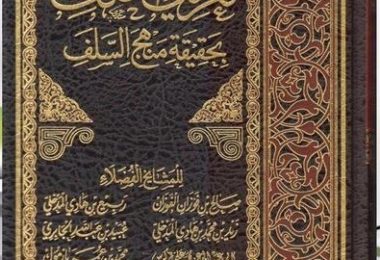 بحقيقة منهج السلف
للمشايخ الفضلاء
ربيع بن هادي المدخلي صالح بن فوزان الفوزان
عبيد بن عبد الله الجابري زيد بن محمد بن هادي المدخلي